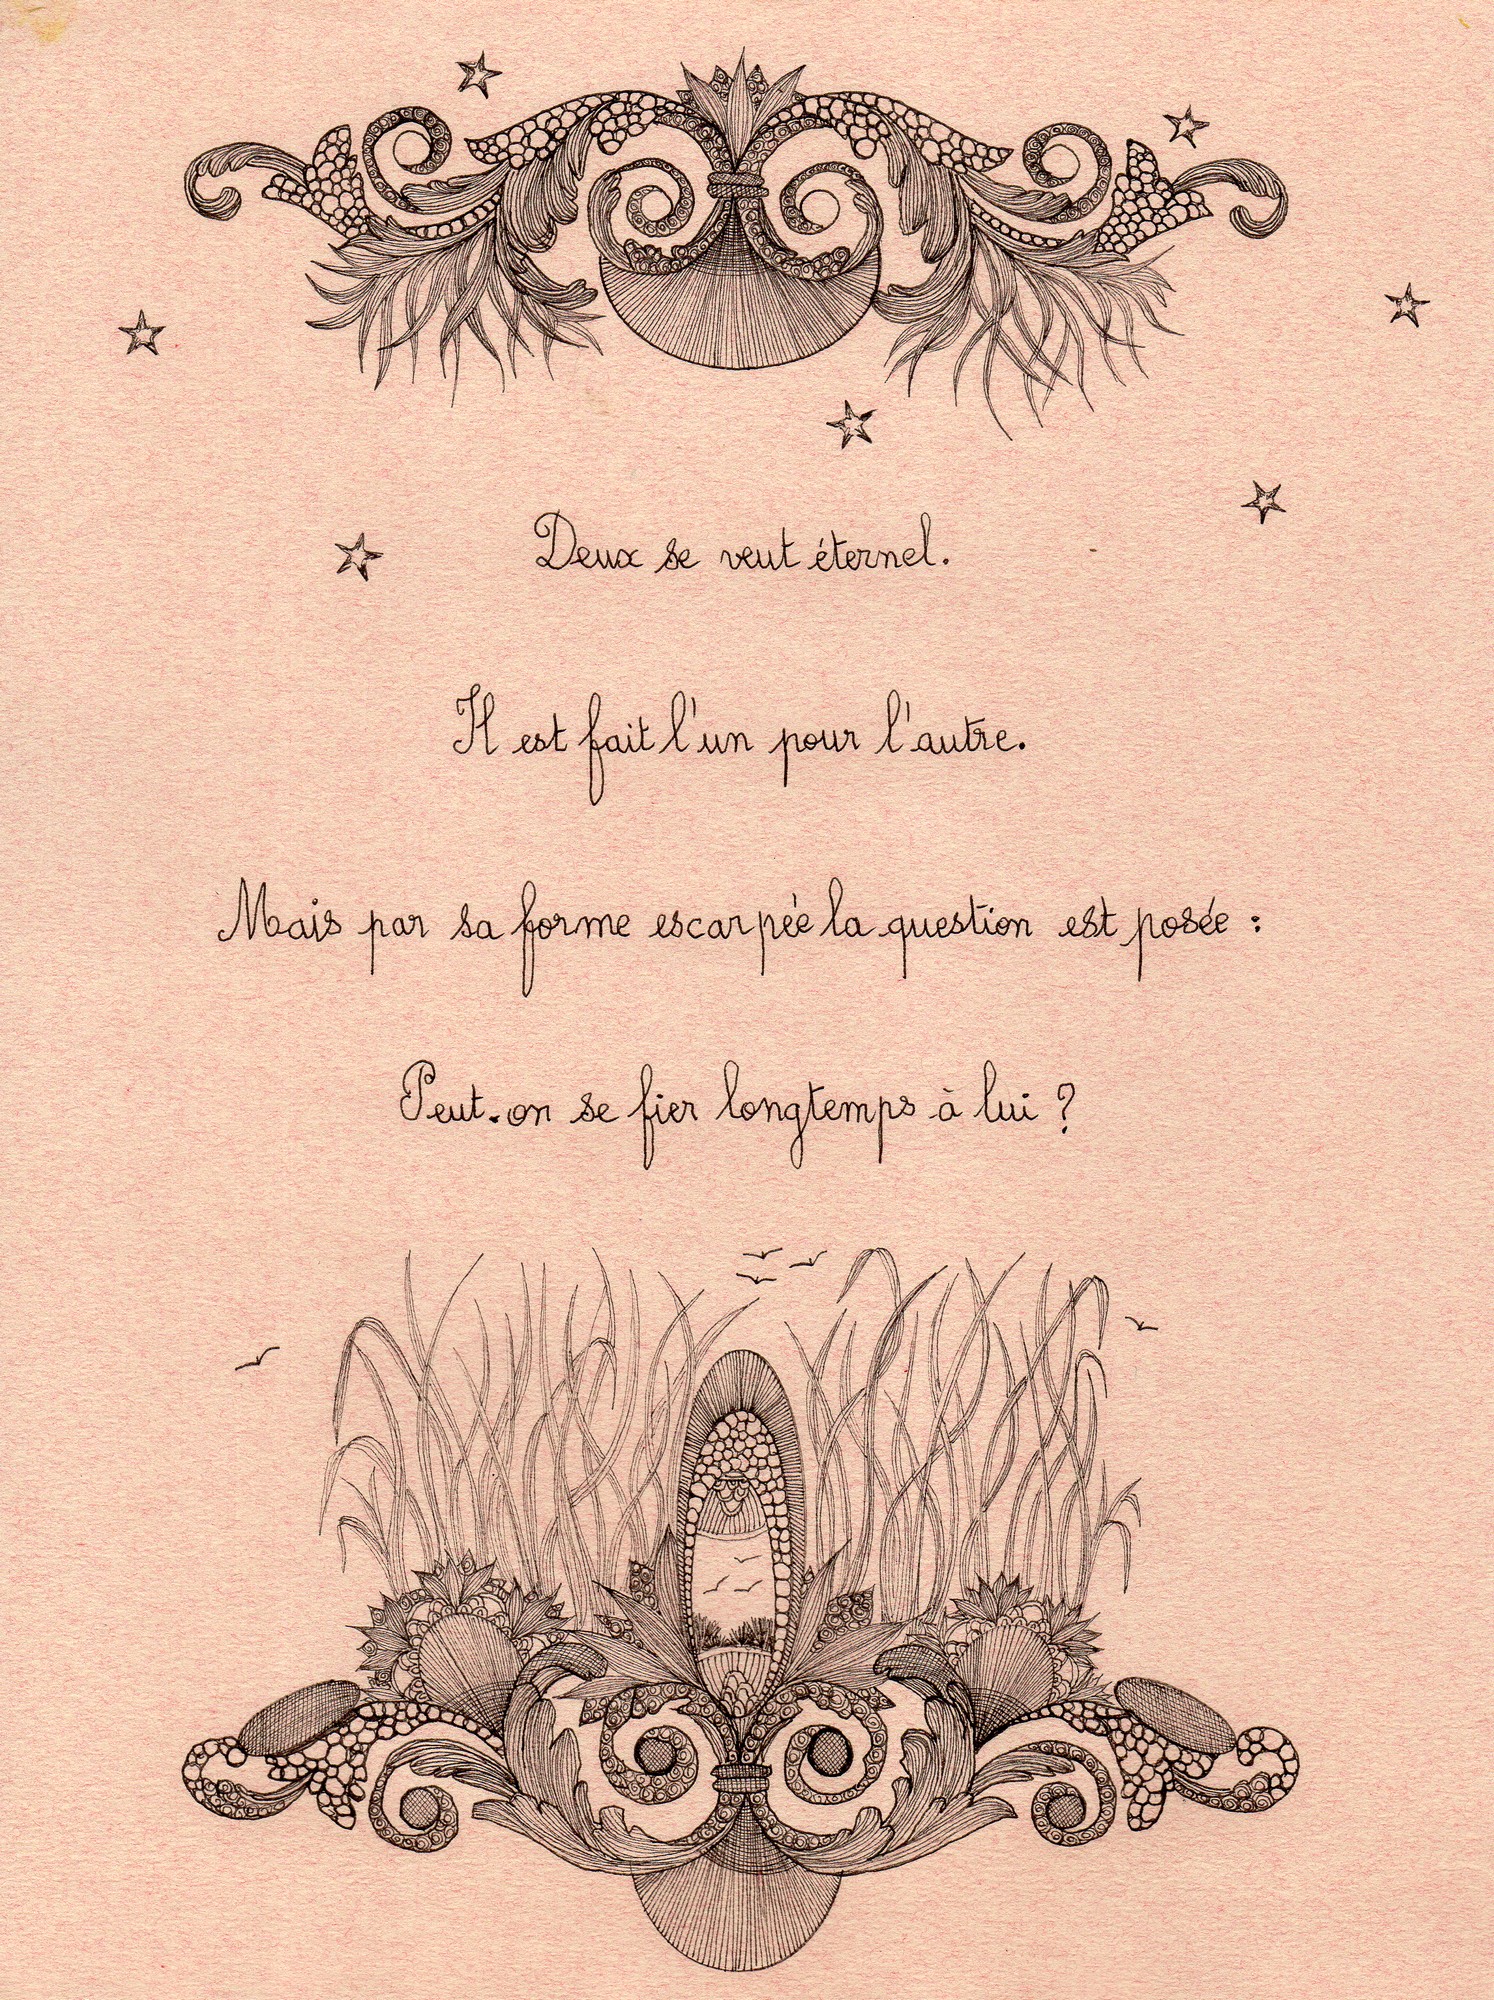 Deux se veut éternel.
Il est fait l'un pour l'autre.
Mais par sa forme escarpée la question est posée :
Peut-on se fier longtemps à lui ?